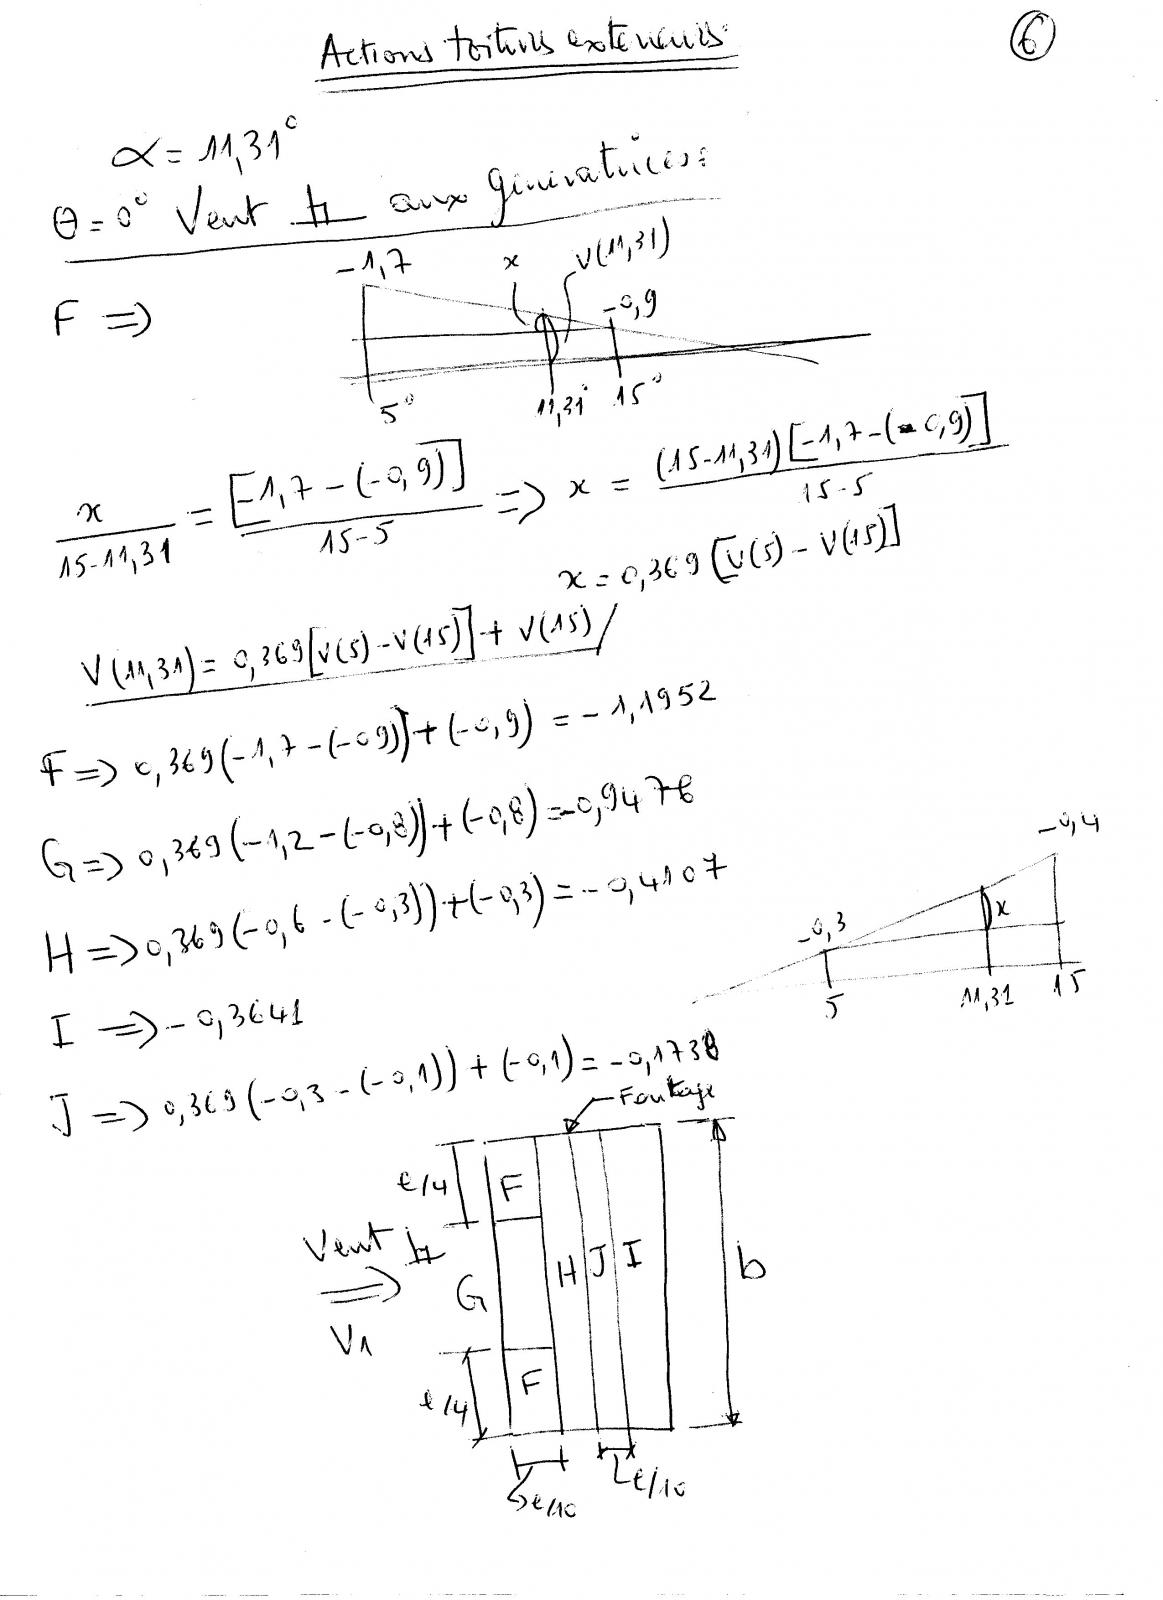 Actions toitures exterieurs
6
α = 11,31°
θ = 0° Vent ⊥ aux génératrices:
-1,7
x
V(11,31)
-0,9
F ⇒
5°
11,31°
15°
x / (15-11,31) = [-1,7 - (-0,9)] / (15-5) ⇒ x = (15-11,31)[-1,7-(-0,9)] / (15-5)
x = 0,369 [V(5) - V(15)]
V(11,31) = 0,369 [V(5) - V(15)] + V(15) /
F ⇒ 0,369 (-1,7 - (-0,9)) + (-0,9) = -1,1952
G ⇒ 0,369 (-1,2 - (-0,8)) + (-0,8) = -0,9476
H ⇒ 0,369 (-0,6 - (-0,3)) + (-0,3) = -0,4107
-0,4
-0,3
x
5
11,31
15
I ⇒ -0,3641
J ⇒ 0,369 (-0,3 - (-0,1)) + (-0,1) = -0,1738
Faîtage
e/4
F
Vent ⊥
V1
G
H
J
I
b
e/4
F
e/10
e/10